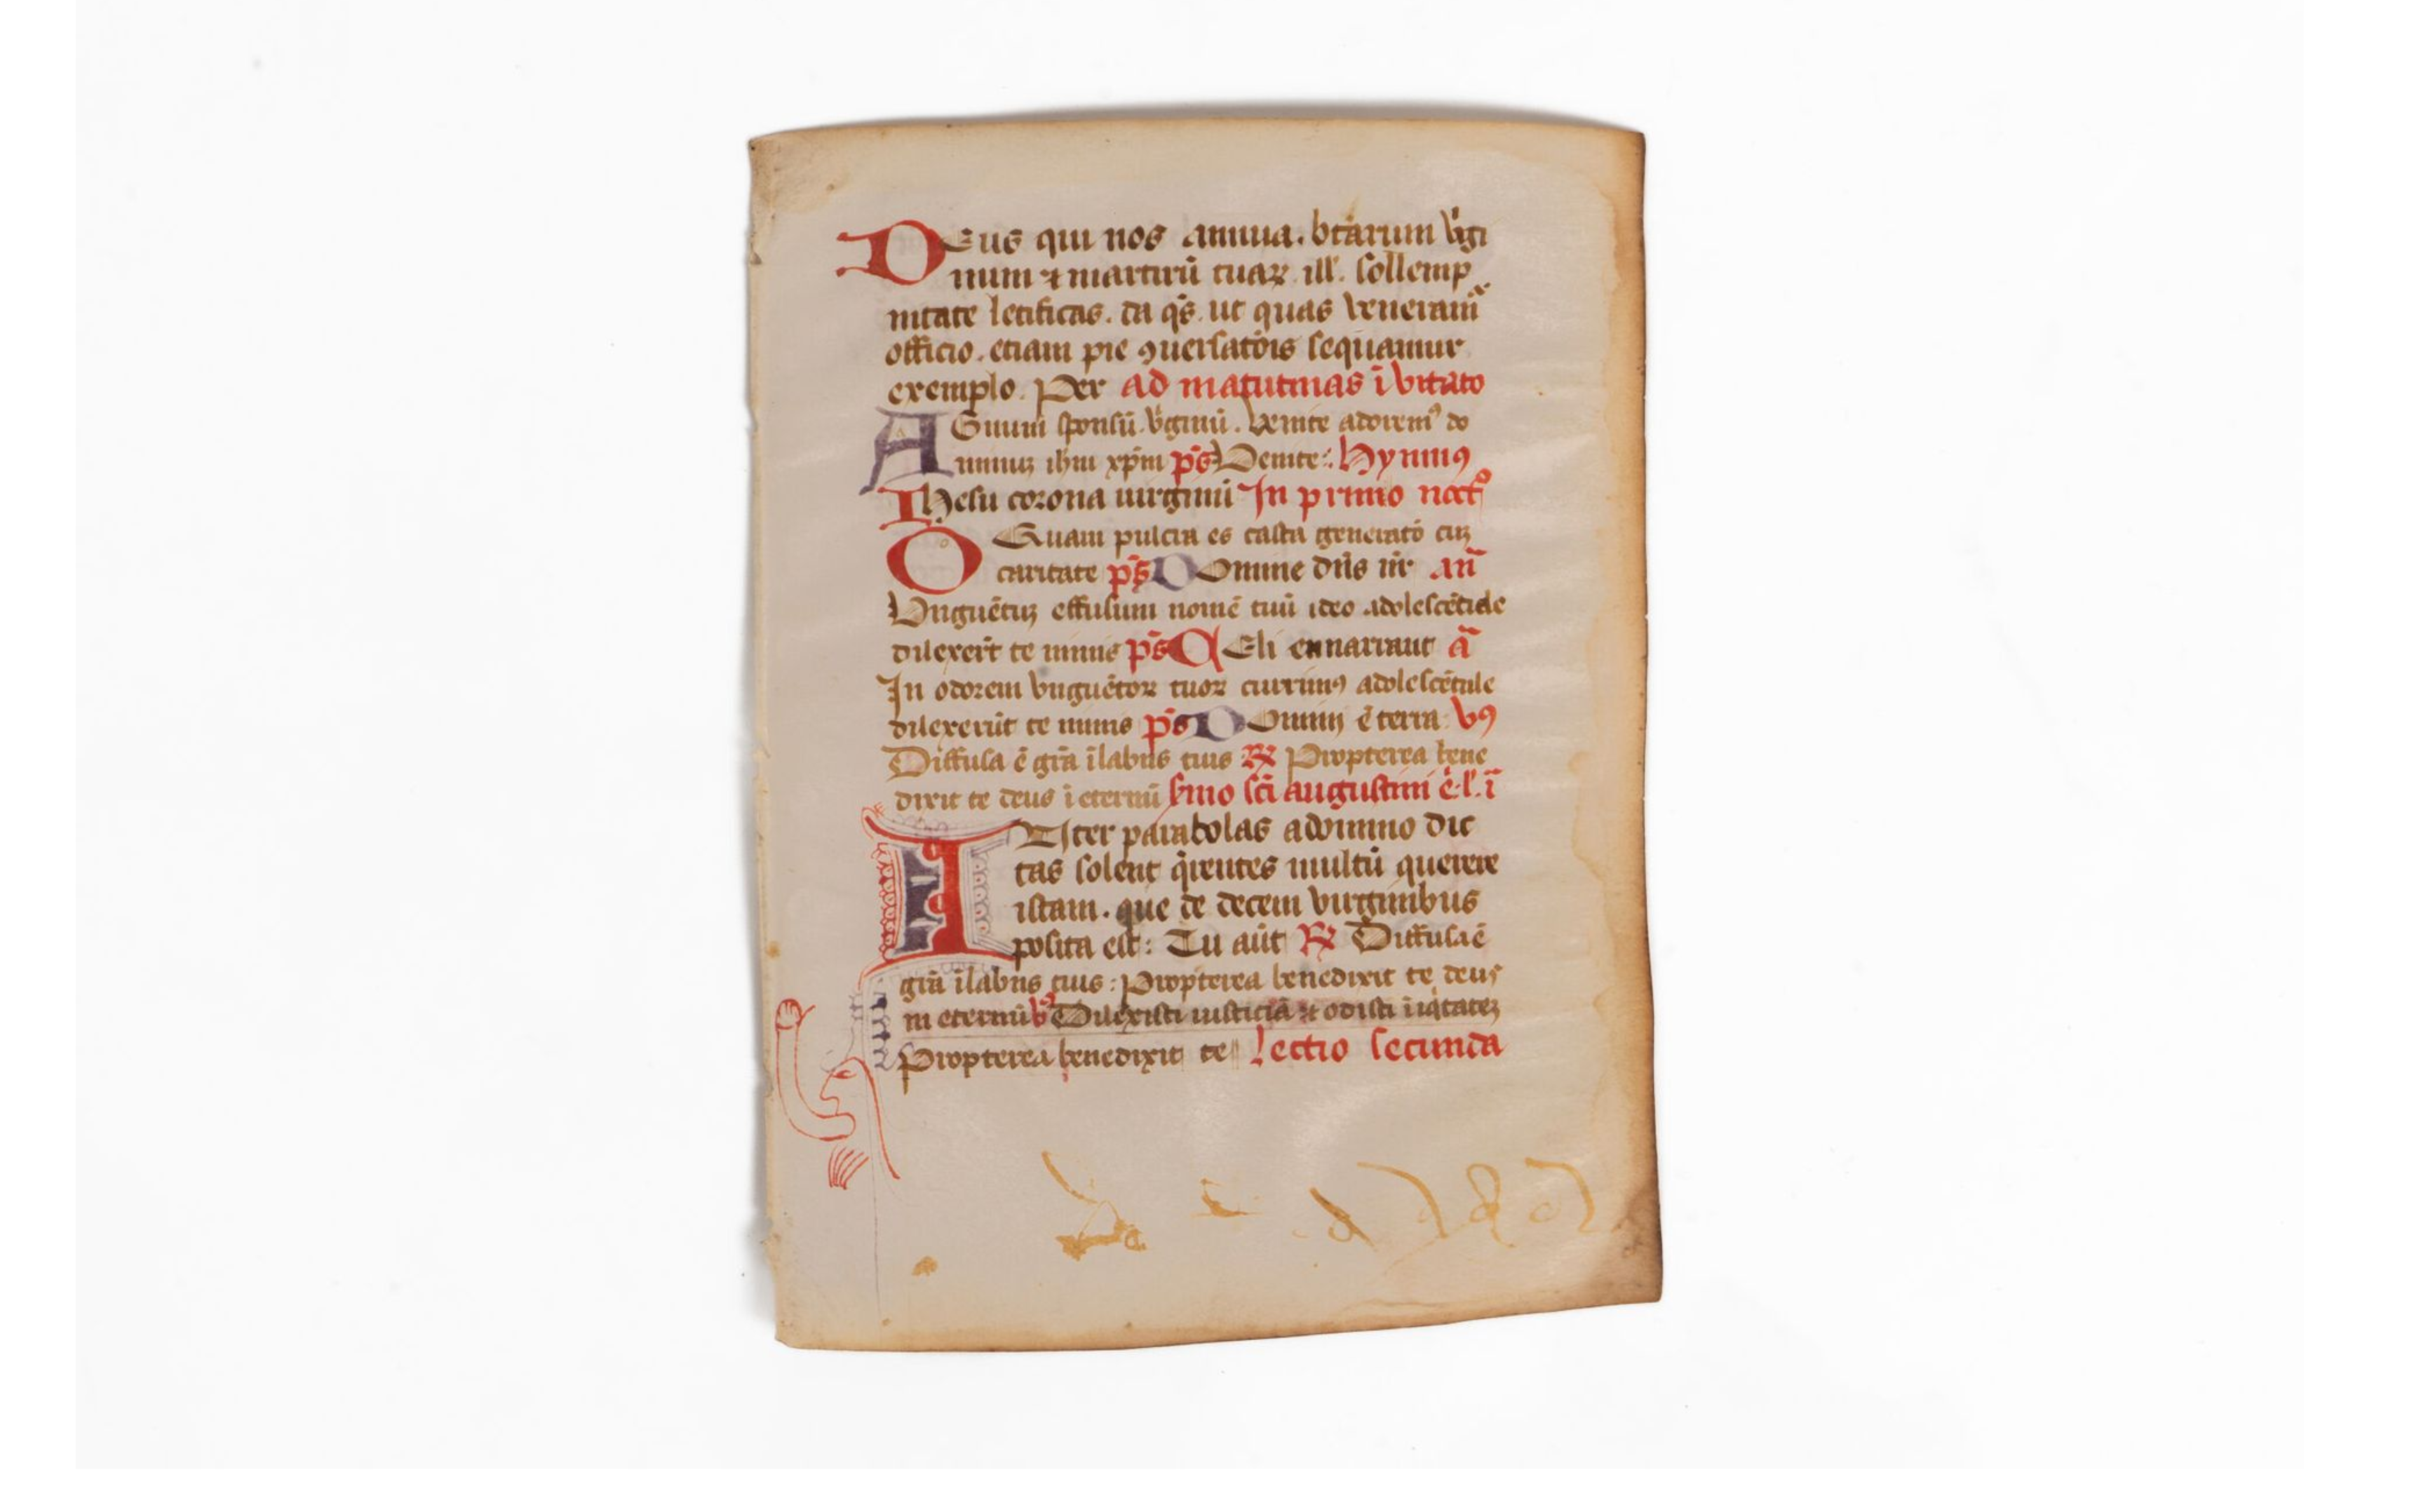 DEus qui nos annua. btārum v̓gi
num ⁊ martirū tuaꝝ ill̓. sollemp
nitate letificas. da qs̄. ut quas veneram᷒
officio. etiam pie ꝯuersatōis sequamur
exemplo. Per ad matutinas īvitato
AGnum sponsū v̓ginū. venite adorem᷒ do
minuꝫ ihm xp̄m ps̄ Venite: hymnꝰ
Ihesu corona uirginū In primo noct᷒
O Quam pulcra es casta generatō cuꝫ
caritate ps̄ DOmine dn̄s nr̄ an̄
Vnguētuꝫ effusum nomē tuū ideo adolescētule
dilexert̄ te nimis ps̄ CEli ennarrant a̅
In odorem vnguētoꝝ tuoꝝ currimꝰ adolescētule
dilexerūt te nimis ps̄ DOmini ē terra vꝰ
Diffusa ē grā īlabiis tuis ℞ Propterea bene
dixit te deus ī eternū s̓mo sc̄i augustini e. l̓. ī
INter parabolas adomino dic
tas solent q̓rentes multū querere
istam. que de decem virginibus
posita est: Tu aūt ℞ Diffusa ē
grā īlabiis tuis: Propterea benedixit te deus
in eternū v᷒ Dilexisti iusticiā ⁊ odisti īiq̓tateꝫ
Propterea benedixit te lectio secunda